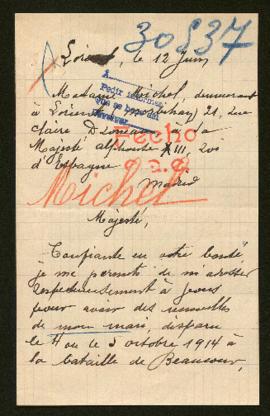 30837
Lorient, le 12 Juin
Madame Michel, demeurant
à Lorient (Morbihan) 21, rue
Claire Droneau à sa
A
Pedir informes
Fecho
Majesté Alphonse XIII, roi
d'Espagne
Madrid
Michel
Majesté,
Confiante en votre bonté,
je me permets de m'adresser
respectueusement à
pour avoir des nouvelles
de mon mari, disparu
le 4 ou le 5 octobre 1914 à
la bataille de Beaucour,